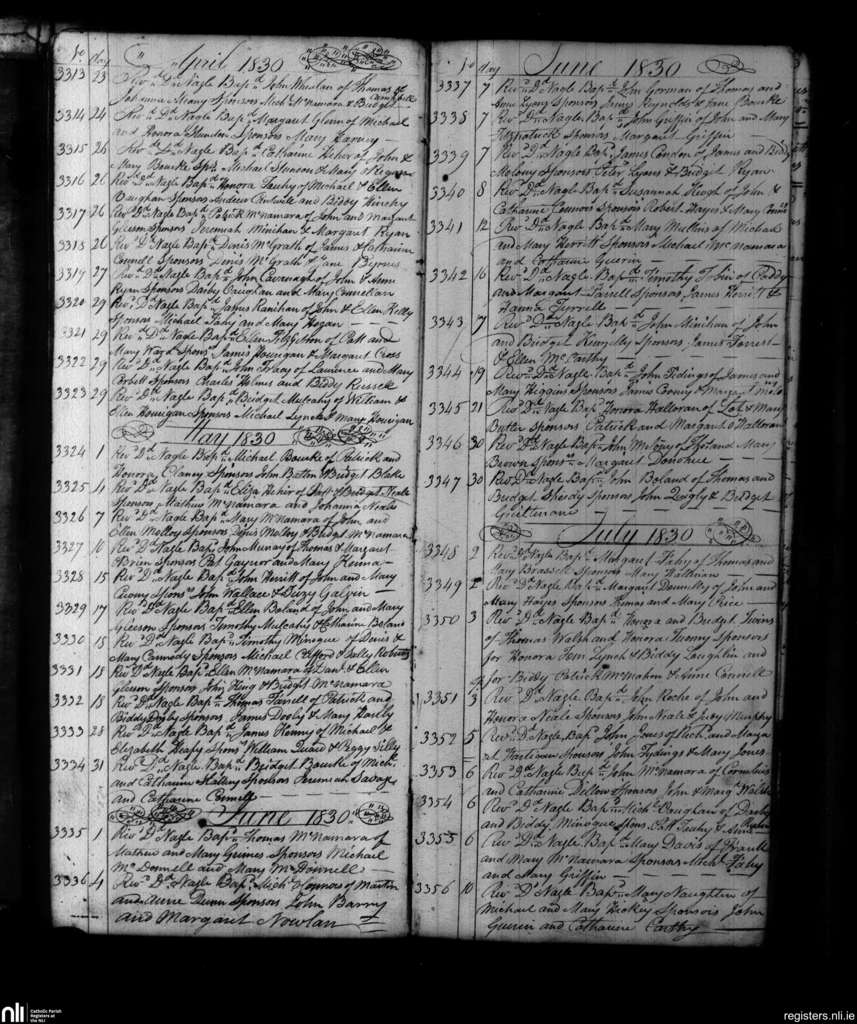 No day April 1830
3313 23 Revd Dd Nagle Bapd John Whelan of Thomas &
Johanna Meany Sponsors Mich McNamara & Bridget Campbell
3314 24 Revd Dn Nagle Bapd Margaret Glenn of Michael
and Honora Sponsors Mary Harvey
3315 26 Revd Dn Nagle Bapd Catharine Hehir of John &
Mary Bourke Spr Michael and Mary
3316 26 Revd Dd Nagle Bapd Honora of Michael & Ellen
Vaughan Sponsors Andrew and Biddy
3317 26 Revd Dd Nagle Bapd Patrick McNamara of John and Margaret
Gleeson Sponsors Jeremiah Minihan & Margaret Ryan
3318 26 Revd Dd Nagle Bapd Denis McGrath of James & Catharine
Connell Sponsors Denis McGrath & Jane Byrnes
3319 27 Revd Dd Nagle Bapd John Cavanagh of John & Anne
Ryan Sponsors Darby and Mary
3320 29 Revd Dd Nagle Bapd James Ranihan of John & Ellen Reddy
Sponsors Michael Fahy and Mary Hogan
3321 29 Revd Dn Nagle Bapd Ellen of Patt and
Mary Ward Sponrs James Hourigan & Margaret Cross
3322 29 Revd Dd Nagle Bapd John Tracy of Laurence and Mary
Corbett Sponsors Charles Holmes and Biddy
3323 29 Revd Dd Nagle Bapd Bridget Mulcahy of William &
Ellen Hourigan Sponsors Michael Lynch & Mary Hourigan
May 1830
3324 1 Revd Dd Nagle Bapd Michael Bourke of Patrick and
Honora Clancy Sponsors John & Bridget Blake
3325 4 Revd Dd Nagle Bapd Eliza Hehir of Patt & Bridget Neale
Sponsors Mathew McNamara and Johanna Neale
3326 7 Revd Dd Nagle Bapd Mary McNamara of John and
Ellen Molloy Sponsors Denis Molloy & Bridget McNamara
3327 10 Revd Dd Nagle Bapd John Murray of Thomas & Margaret
OBrien Sponsors Pat Gaynor and Mary
3328 15 Revd Dd Nagle Bapd John Herritt of John and Mary
Sponrs John Wallace & Galvin
3329 17 Revd Dd Nagle Bapd Ellen Boland of John and Mary
Gleeson Sponsors Timothy Mulcahy & Catharine Boland
3330 15 Revd Dd Nagle Bapd Timothy Minogue of Denis &
Mary Carmody Sponsors Michael Clifford & Sally Roberts
3331 18 Revd Dd Nagle Bapd Ellen McNamara of Danl & Ellen
Gleeson Sponsors John King & Bridget McNamara
3332 18 Revd Dd Nagle Bapd Thomas Farrell of Patrick and
Biddy Dooly Sponsors James Dooly & Mary
3333 28 Revd Dd Nagle Bapd James Kenny of Michael &
Elizabeth Heap Sponrs William & Peggy
3334 31 Revd Dd Nagle Bapd Bridget Bourke of Michl
and Catharine Slattery Sponsors Jeremiah Savage
and Catharine Connell
June 1830
3335 1 Revd Dd Nagle Bapd Thomas McNamara of
Mathew and Mary Guinea Sponsors Michael
McDonnell and Mary McDonnell
3336 4 Revd Dd Nagle Bapd Michl Connors of Martin
and Anne Quinn Sponsors John Barry
and Margaret Nowlan
No day June 1830
3337 7 Revd Dd Nagle Bapd John Gorman of Thomas and
Anne Lyons Sponsors James Reynolds & Jane Bourke
3338 7 Revd Dn Nagle Bapd John Griffin of John and Mary
Fitzpatrick Sponsors Margaret Griffin
3339 7 Revd Dd Nagle Bapd James Condon of James and Biddy
Molony Sponsors Peter Lyons & Bridget Ryan
3340 8 Revd Dd Nagle Bapd Susannah Keogh of John &
Catharine Connors Sponsors Robert Hayes & Mary
3341 12 Revd Dd Nagle Bapd Mary Mullins of Michael
and Mary Herritt Sponsors Michael McNamara
and Catharine Guerin
3342 16 Revd Dd Nagle Bapd Timothy Tobin of Paddy
and Margaret Farrell Sponsors James Herritt &
Hanna Tyrrell
3343 17 Revd Dd Nagle Bapd John Minihan of John
and Bridget Kennelly Sponsors James Forrest
& Ellen McCarthy
3344 19 Revd Dd Nagle Bapd John Tidings of James and
Mary Higgins Sponsors James Cooney & Margaret
3345 21 Revd Dd Nagle Bapd Honora Halloran of Pat & Mary
Butler Sponsors Patrick and Margaret O Halloran
3346 30 Revd Dd Nagle Bapd John Molony of Thos and Mary
Brown Sponsrs Margaret Donohue
3347 30 Revd Dd Nagle Bapd John Boland of Thomas and
Bridget Sheedy Sponsors John Quigly & Bridget
Guiltenane
July 1830
3348 2 Revd Dd Nagle Bapd Margaret Fahy of Thomas and
Mary Brassil Sponsors Mary Halloran
3349 2 Revd Dd Nagle Bapd Margaret Donnelly of John and
Mary Hayes Sponsors Thomas and Mary Rice
3350 3 Revd Dd Nagle Bapd Honora and Bridget Twins
of Thomas Walsh and Honora Twomy Sponsors
for Honora Tom Lynch & Biddy Laughlin and
for Biddy Patrick McMahon & Anne Connell
3351 3 Revd Dd Nagle Bapd John Roche of John and
Honora Neale Sponsors John Neale & Murphy
3352 5 Revd Dd Nagle Bapd John Jones of Richd and Marga
et Hartigan Sponsors John Tidings & Mary Jones
3353 6 Revd Dd Nagle Bapd John McNamara of Cornelius
and Catharine Dillon Sponsors John & Margt Walsh
3354 6 Revd Dd Nagle Bapd Michl Vaughan of Darby
and Biddy Minogue Spons Patt &
3355 6 Revd Dd Nagle Bapd Mary Davis of Frank
and Mary McNamara Sponsors Michl Fahy
and Mary Griffin
3356 10 Revd Dd Nagle Bapd Mary Naughten of
Michael and Mary Hickey Sponsors John
Guerin and Catharine Carthy
nli Catholic Parish
Registers at
the NLI
registers.nli.ie